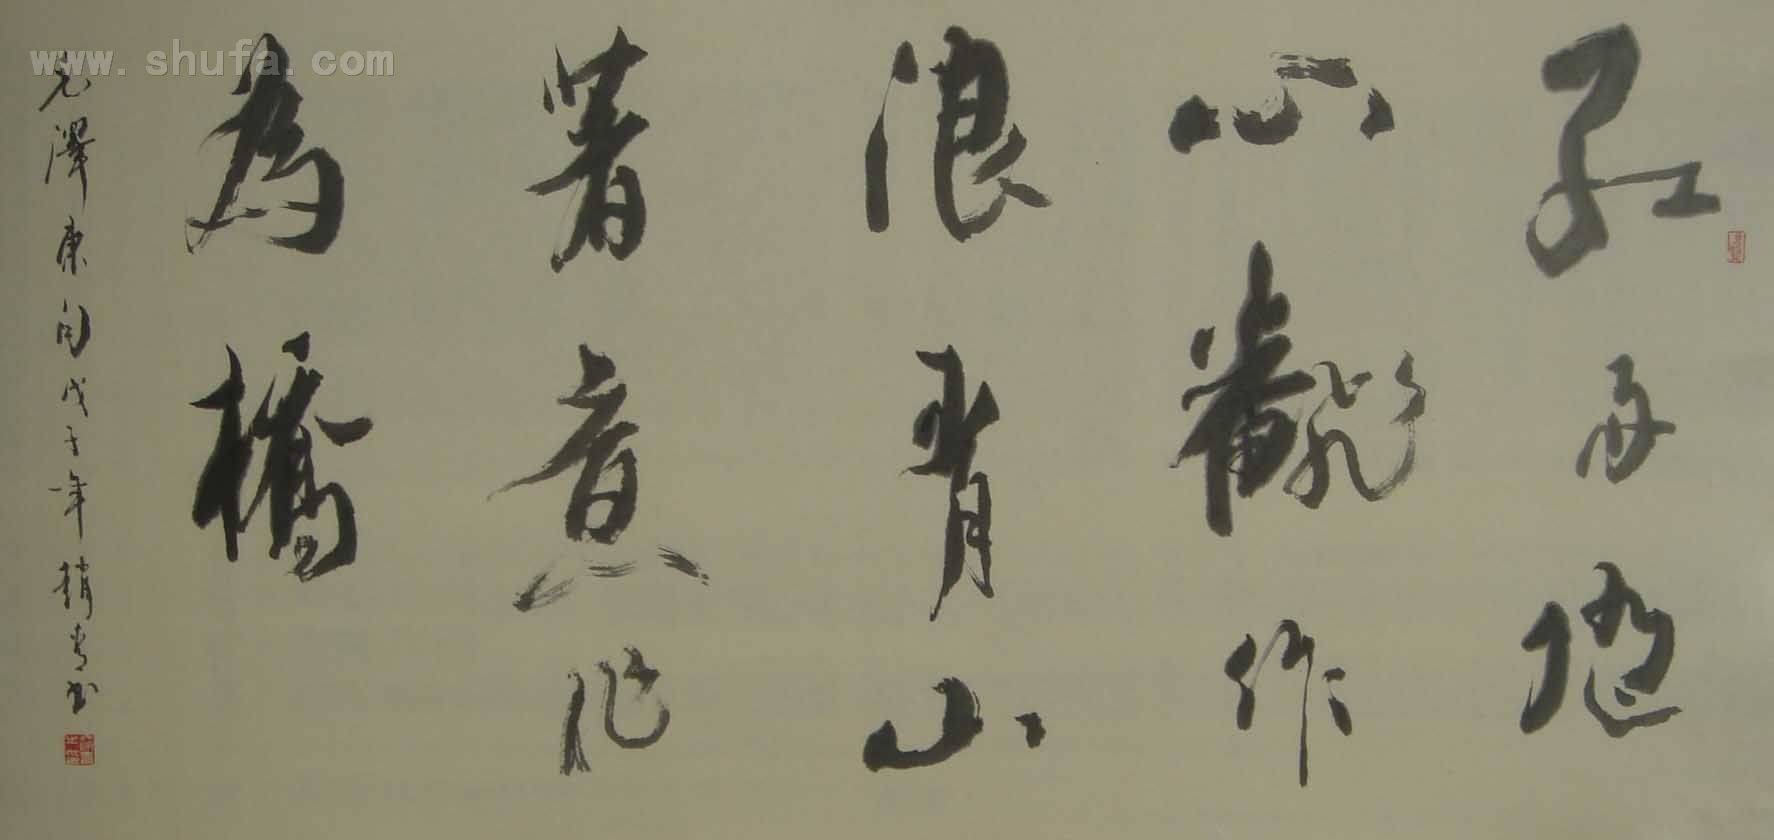 紅雨隨
心飜作
浪青山
著意化
為橋
毛澤東句戊子年 书
www.shufa.com